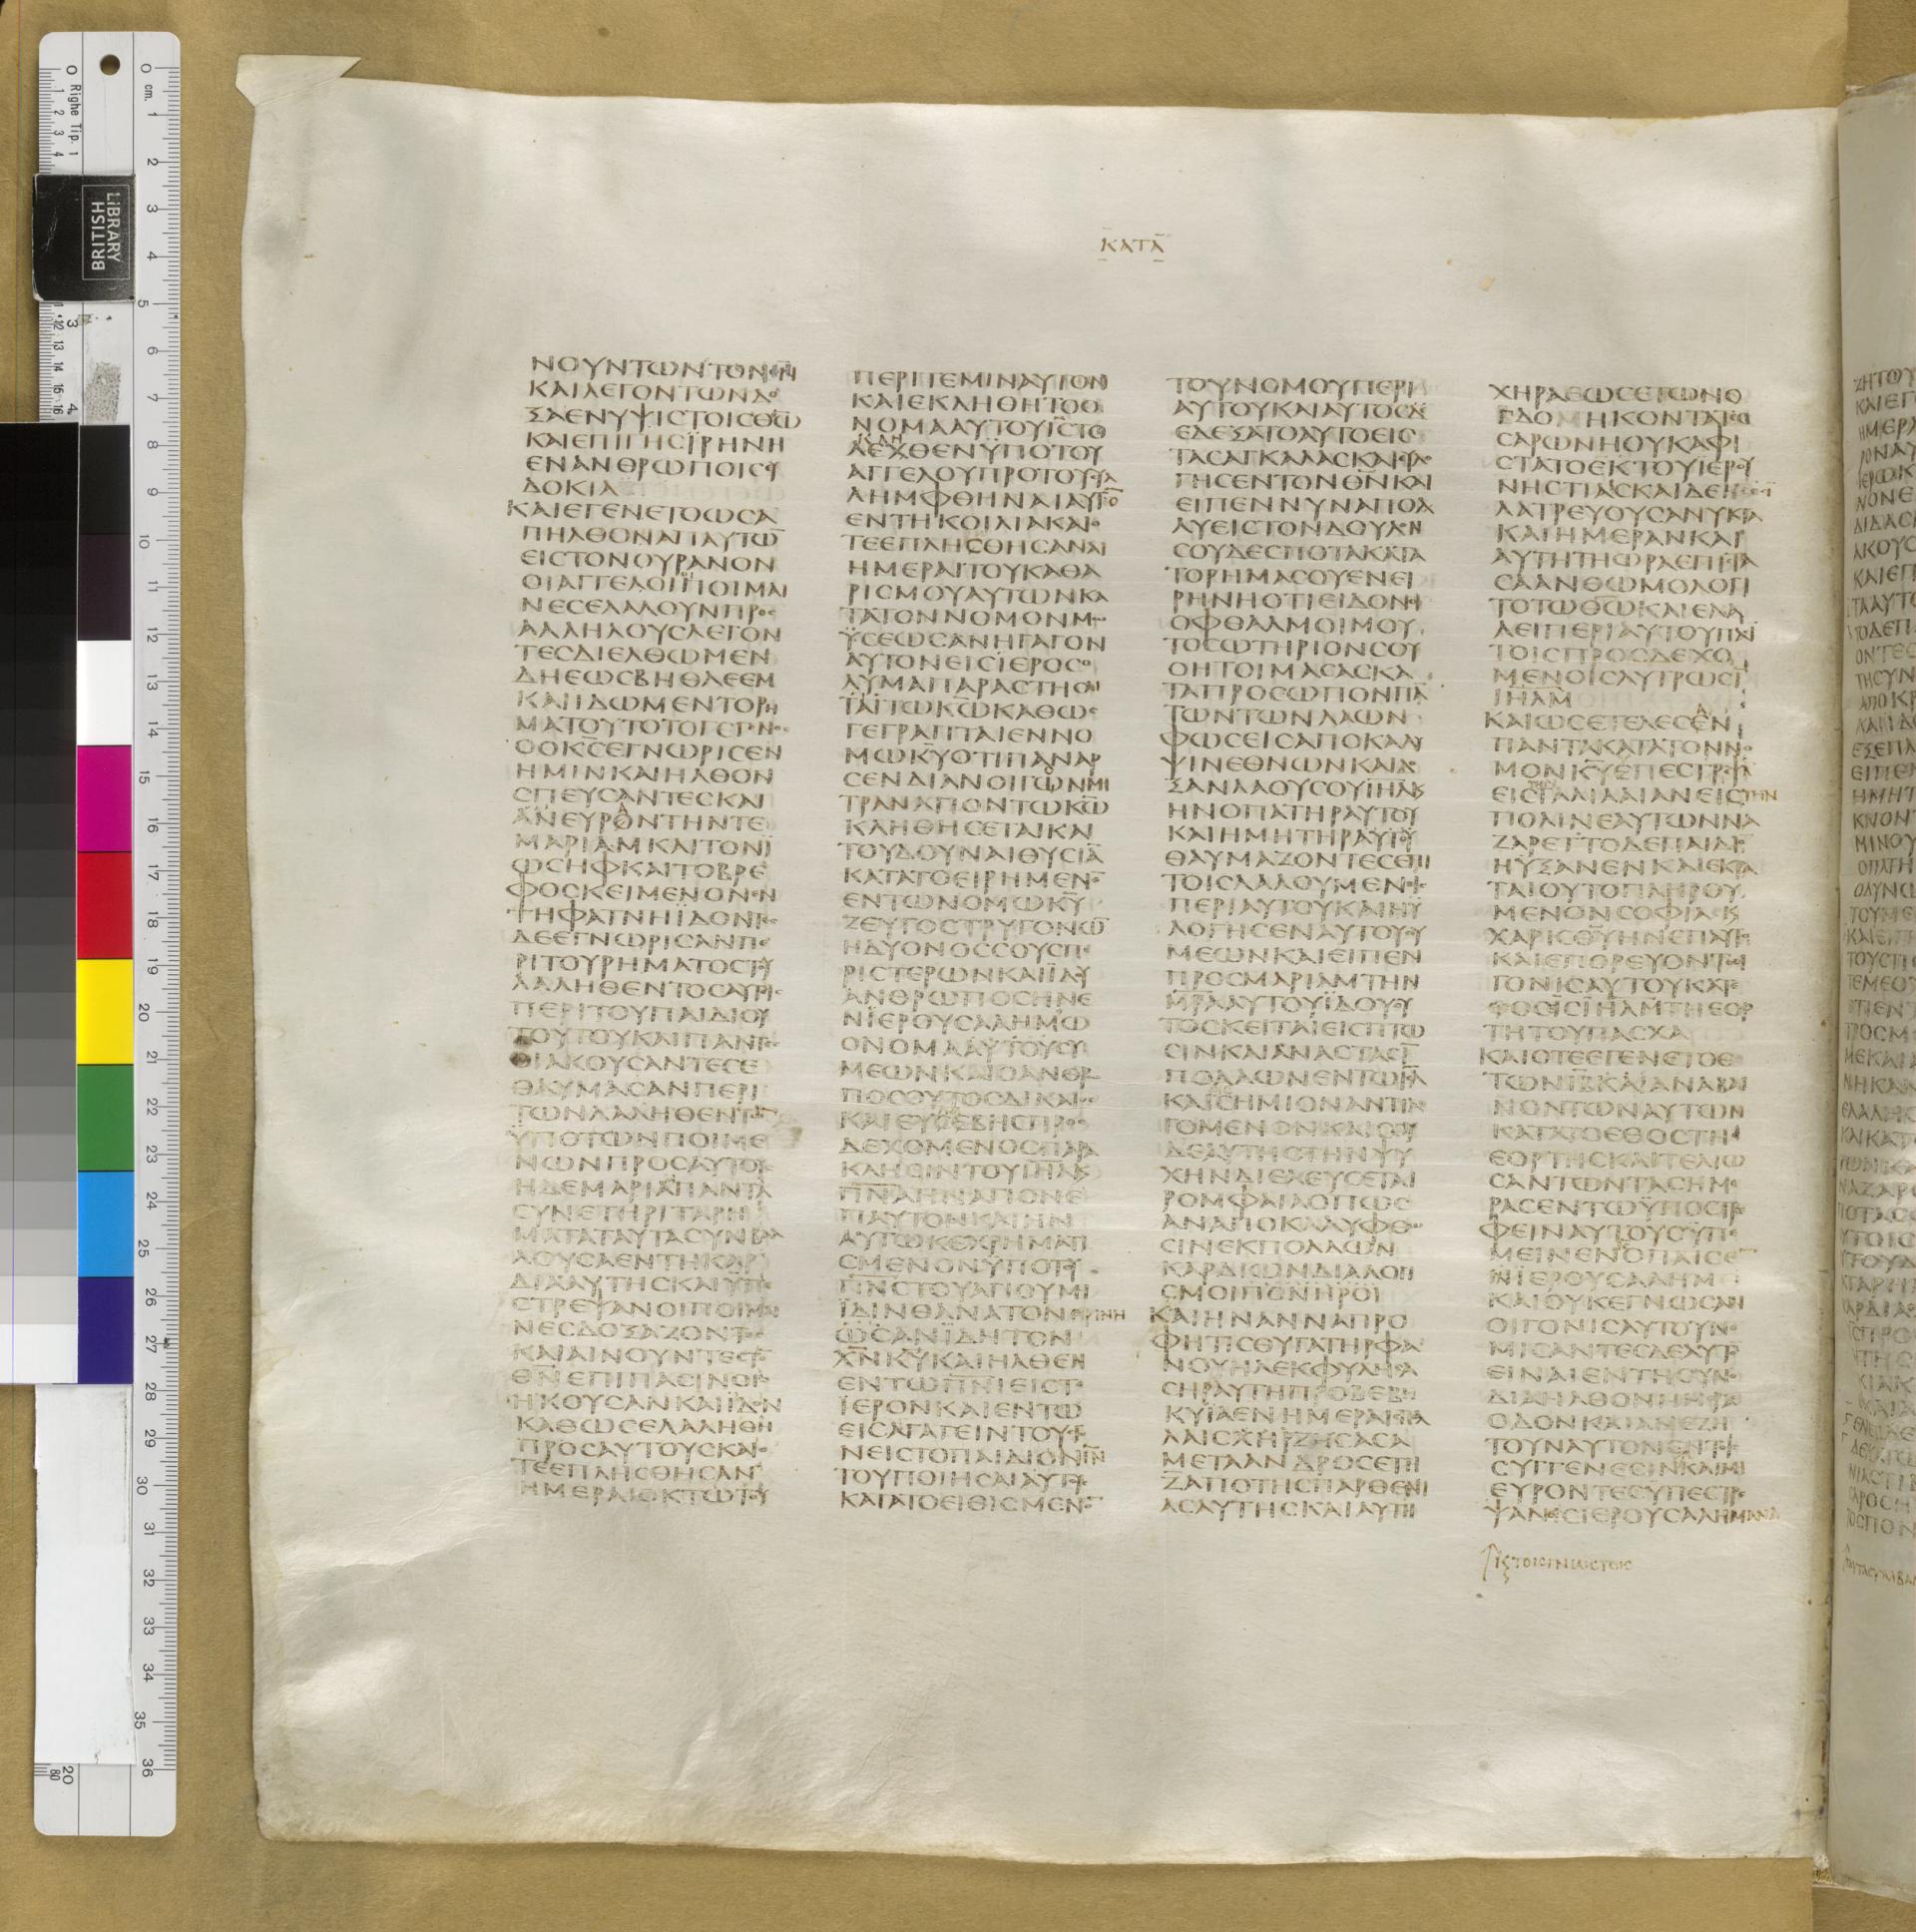 ΚΑΤΑ
ΝΟΥΝΤΩΝΤΟΝΘΝ
ΚΑΙΛΕΓΟΝΤΩΝΔΟ
ΞΑΕΝΥΨΙϹΤΟΙϹΘΩ
ΚΑΙΕΠΙΓΗϹΪΡΗΝΗ
ΕΝΑΝΘΡΩΠΟΙϹΕΥ
ΔΟΚΙΑϹ
ΚΑΙΕΓΕΝΕΤΟΩϹΑ
ΠΗΛΘΟΝΑΠΑΥΤΩ
ΕΙϹΤΟΝΟΥΡΑΝΟΝ
ΟΙΑΓΓΕΛΟΙΟΙΠΟΙΜΑΙ
ΝΕϹΕΛΑΛΟΥΝΠΡΟϹ
ΑΛΛΗΛΟΥϹΛΕΓΟΝ
ΤΕϹΔΙΕΛΘΩΜΕΝ
ΔΗΕΩϹΒΗΘΛΕΕΜ
ΚΑΙΙΔΩΜΕΝΤΟΡΗ
ΜΑΤΟΥΤΟΤΟΓΕΓΟΝΟϹ
ΟΟΚϹΕΓΝΩΡΙϹΕΝ
ΗΜΙΝΚΑΙΗΛΘΟΝ
ϹΠΕΥϹΑΝΤΕϹΚΑΙ
ΑΝΕΥΡΟΝΤΗΝΤΕ
ΜΑΡΙΑΜΚΑΙΤΟΝΪ
ΩϹΗΦΚΑΙΤΟΒΡΕ
ΦΟϹΚΕΙΜΕΝΟΝΕΝ
ΤΗΦΑΤΝΗΪΔΟΝΤΕϹ
ΔΕΕΓΝΩΡΙϹΑΝΠΕ
ΡΙΤΟΥΡΗΜΑΤΟϹΤΟΥ
ΛΑΛΗΘΕΝΤΟϹΑΥΤΟΙϹ
ΠΕΡΙΤΟΥΠΑΙΔΙΟΥ
ΤΟΥΤΟΥΚΑΙΠΑΝΤΕϹ
ΟΙΑΚΟΥϹΑΝΤΕϹΕ
ΘΑΥΜΑϹΑΝΠΕΡΙ
ΤΩΝΛΑΛΗΘΕΝΤΩ
ΫΠΟΤΩΝΠΟΙΜΕ
ΝΩΝΠΡΟϹΑΥΤΟΥϹ
ΗΔΕΜΑΡΙΑΠΑΝΤΑ
ϹΥΝΕΤΗΡΙΤΑΡΗ
ΜΑΤΑΤΑΥΤΑϹΥΝΒΑΛ
ΛΟΥϹΑΕΝΤΗΚΑΡ
ΔΙΑΑΥΤΗϹΚΑΙΫΠΕ
ϹΤΡΕΨΑΝΟΙΠΟΙΜΑΙ
ΝΕϹΔΟΞΑΖΟΝΤΕϹ
ΚΑΙΑΙΝΟΥΝΤΕϹΤΟ
ΘΝΕΠΙΠΑϹΙΝΟΙϹ
ΗΚΟΥϹΑΝΚΑΙΪΔΟΝ
ΚΑΘΩϹΕΛΑΛΗΘΗ
ΠΡΟϹΑΥΤΟΥϹΚΑΙΟ
ΤΕΕΠΛΗϹΘΗϹΑΝ
ΗΜΕΡΑΙΟΚΤΩΤΟΥ
ΠΕΡΙΤΕΜΙΝΑΥΤΟΝ
ΚΑΙΕΚΛΗΘΗΤΟΟ
ΝΟΜΑΑΥΤΟΥΙϹΤΟ
ΚΛΗ
ΛΕΧΘΕΝΫΠΟΤΟΥ
ΑΓΓΕΛΟΥΠΡΟΤΟΥϹΥΛ
ΛΗΜΦΘΗΝΑΙΑΥΤΟ
ΕΝΤΗΚΟΙΛΙΑΚΑΙΟ
ΤΕΕΠΛΗϹΘΗϹΑΝΑΙ
ΗΜΕΡΑΙΤΟΥΚΑΘΑ
ΡΙϹΜΟΥΑΥΤΩΝΚΑ
ΤΑΤΟΝΝΟΜΟΝΜΩ
ΫϹΕΩϹΑΝΗΓΑΓΟΝ
ΑΥΤΟΝΕΙϹΪΕΡΟϹΟ
ΛΥΜΑΠΑΡΑϹΤΗϹΑΙ
ΤΩΚΩΚΑΘΩϹ
ΓΕΓΡΑΠΤΑΙΕΝΝΟ
ΜΩΚΥΟΤΙΠΑΝΑΡ
ϹΕΝΔΙΑΝΟΙΓΩΝΜΙ
ΤΡΑΝΑΓΙΟΝΤΩΚΩ
ΚΛΗΘΗϹΕΤΑΙΚΑΙ
ΤΟΥΔΟΥΝΑΙΘΥϹΙΑ
ΚΑΤΑΤΟΕΙΡΗΜΕΝΟ
ΕΝΤΩΝΟΜΩΚΥ
ΖΕΥΓΟϹΤΡΥΓΟΝΩ
ΗΔΥΟΝΟϹϹΟΥϹΠΕ
ΡΙϹΤΕΡΩΝΚΑΙΪΔΟΥ
ΑΝΘΡΩΠΟϹΗΝΕ
ΝΪΕΡΟΥϹΑΛΗΜΩ
ΟΝΟΜΑΑΥΤΟΥϹΥ
ΜΕΩΝΚΑΙΟΑΝΘΡΩ
ΠΟϹΟΥΤΟϹΔΙΚΑΙΟϹ
ΚΑΙΕΥϹΕΒΗϹΠΡΟϹ
ΔΕΧΟΜΕΝΟϹΠΑΡΑ
ΚΛΗϹΙΝΤΟΥΙΗΛΚΑΙ
ΠΝΑΗΝΑΓΙΟΝΕ
ΠΑΥΤΟΝΚΑΙΗΝ
ΑΥΤΩΚΕΧΡΗΜΑΤΙ
ϹΜΕΝΟΝΫΠΟΤΟΥ
ΠΝϹΤΟΥΑΓΙΟΥΜΗ
ΪΔΙΝΘΑΝΑΤΟΝΠΡΙΝΗ
ΩϹΑΝΪΔΗΤΟΝ
ΧΝΚΥΚΑΙΗΛΘΕΝ
ΕΝΤΩΠΝΙΕΙϹΤΟ
ΪΕΡΟΝΚΑΙΕΝΤΩ
ΕΙϹΑΓΑΓΕΙΝΤΟΥϹΓΟ
ΝΕΙϹΤΟΠΑΙΔΙΟΝΙΝ
ΤΟΥΠΟΙΗϹΑΙΑΥΤΟΥϹ
ΚΑΤΑΤΟΕΙΘΙϹΜΕΝΟ
ΤΟΥΝΟΜΟΥΠΕΡΙ
ΑΥΤΟΥΚΑΙΑΥΤΟϹ
ΕΔΕΞΑΤΟΑΥΤΟΕΙϹ
ΤΑϹΑΓΚΑΛΑϹΚΑΙΕΥΛΟ
ΓΗϹΕΝΤΟΝΘΝΚΑΙ
ΕΙΠΕΝΝΥΝΑΠΟΛ
ΛΥΕΙϹΤΟΝΔΟΥΛΟΝ
ϹΟΥΔΕϹΠΟΤΑΚΑΤΑ
ΤΟΡΗΜΑϹΟΥΕΝΕΙ
ΡΗΝΗΟΤΙΕΙΔΟΝΟΙ
ΟΦΘΑΛΜΟΙΜΟΥ
ΤΟϹΩΤΗΡΙΟΝϹΟΥ
ΟΗΤΟΙΜΑϹΑϹΚΑ
ΤΑΠΡΟϹΩΠΟΝΠΑ
ΤΩΝΤΩΝΛΑΩΝ
ΦΩϹΕΙϹΑΠΟΚΑΛΥ
ΨΙΝΕΘΝΩΝΚΑΙΔΟ
ΞΑΝΛΑΟΥϹΟΥΙΗΛΚΑΙ
ΗΝΟΠΑΤΗΡΑΥΤΟΥ
ΚΑΙΗΜΗΤΗΡΑΥΤΟΥ
ΘΑΥΜΑΖΟΝΤΕϹΕΠΙ
ΤΟΙϹΛΑΛΟΥΜΕΝΟΙϹ
ΠΕΡΙΑΥΤΟΥΚΑΙΗΥ
ΛΟΓΗϹΕΝΑΥΤΟΥϹϹΥ
ΜΕΩΝΚΑΙΕΙΠΕΝ
ΠΡΟϹΜΑΡΙΑΜΤΗΝ
ΜΡΑΑΥΤΟΥΪΔΟΥΟΥ
ΤΟϹΚΕΙΤΑΙΕΙϹΠΤΩ
ϹΙΝΚΑΙΑΝΑϹΤΑϹΙ
ΠΟΛΛΩΝΕΝΤΩΙΗΛ
ΚΑΙϹΗΜΙΟΝΑΝΤΙΛΕ
ΓΟΜΕΝΟΝΚΑΙϹΟΥ
ΔΕΑΥΤΗϹΤΗΝΨΥ
ΧΗΝΔΙΕΛΕΥϹΕΤΑΙ
ΡΟΜΦΑΙΑΟΠΩϹ
ΑΝΑΠΟΚΑΛΥΦΘΩ
ϹΙΝΕΚΠΟΛΛΩΝ
ΚΑΡΔΙΩΝΔΙΑΛΟΓΙ
ϹΜΟΙΠΟΝΗΡΟΙ
ΚΑΙΗΝΑΝΝΑΠΡΟ
ΦΗΤΙϹΘΥΓΑΤΗΡΦΑ
ΝΟΥΗΛΕΚΦΥΛΗϹΑ
ϹΗΡΑΥΤΗΠΡΟΒΕΒΗ
ΚΥΪΑΕΝΗΜΕΡΑΙϹΠΟΛ
ΛΑΙϹΧΗΡΖΗϹΑϹΑ
ΜΕΤΑΑΝΔΡΟϹΕΤΗ
ΖΑΠΟΤΗϹΠΑΡΘΕΝΙ
ΑϹΑΥΤΗϹΚΑΙΑΥΤΗ
ΧΗΡΑΕΩϹΕΤΩΝΟ
ΓΔΟΜΗΚΟΝΤΑΤΕϹ
ϹΑΡΩΝΗΟΥΚΑΦΙ
ϹΤΑΤΟΕΚΤΟΥΙΕΡΟΥ
ΝΗϹΤΙΑΙϹΚΑΙΔΕΗϹΕϹΙ
ΛΑΤΡΕΥΟΥϹΑΝΥΚΤΑ
ΚΑΙΗΜΕΡΑΝΚΑΙ
ΑΥΤΗΤΗΩΡΑΕΠΙϹΤΑ
ϹΑΑΝΘΩΜΟΛΟΓΙ
ΤΟΤΩΘΩΚΑΙΕΛΑ
ΛΕΙΠΕΡΙΑΥΤΟΥΠΑϹΙ
ΤΟΙϹΠΡΟϹΔΕΧΟ
ΜΕΝΟΙϹΛΥΤΡΩϹΙ
ΙΗΛΜ
ΚΑΙΩϹΕΤΕΛΕϹΕΝ
ΠΑΝΤΑΚΑΤΑΤΟΝΝΟ
ΜΟΝΚΥΕΠΕϹΤΡΕΨΑ
ΕΙϹΓΑΛΙΛΑΙΑΝΕΙϹΤΗΝ
ΠΟΛΙΝΕΑΥΤΩΝΝΑ
ΖΑΡΕΤΤΟΔΕΠΑΙΔΙΟ
ΗΫΞΑΝΕΝΚΑΙΕΚΡΑ
ΤΑΙΟΥΤΟΠΛΗΡΟΥ
ΜΕΝΟΝϹΟΦΙΑΚΑΙ
ΧΑΡΙϹΘΥΗΝΕΠΑΥΤΟ
ΚΑΙΕΠΟΡΕΥΟΝΤΟΟΙ
ΓΟΝΙϹΑΥΤΟΥΚΑΤΕ
ΤΟϹΙϹΙΗΛΜΤΗΕΟΡ
ΤΗΤΟΥΠΑϹΧΑ
ΚΑΙΟΤΕΕΓΕΝΕΤΟΕ
ΤΩΝΙΒΚΑΙΑΝΑΒΑΙ
ΝΟΝΤΩΝΑΥΤΩΝ
ΚΑΤΑΤΟΕΘΟϹΤΗϹ
ΕΟΡΤΗϹΚΑΙΤΕΛΙΩ
ϹΑΝΤΩΝΤΑϹΗΜΕ
ΡΑϹΕΝΤΩΫΠΟϹΤΡΕ
ΦΕΙΝΑΥΤΟΥϹΫΠΕ
ΜΕΙΝΕΝΟΠΑΙϹΕ
ΝΪΕΡΟΥϹΑΛΗΜ
ΚΑΙΟΥΚΕΓΝΩϹΑΝ
ΟΙΓΟΝΙϹΑΥΤΟΥΝΟ
ΜΙϹΑΝΤΕϹΔΕΑΥΤΟ
ΕΙΝΑΙΕΝΤΗϹΥΝΟ
ΔΙΑΗΛΘΟΝΗΜΕΡΑϹ
ΟΔΟΝΚΑΙΑΝΕΖΗ
ΤΟΥΝΑΥΤΟΝΕΝΤΟΙϹ
ϹΥΓΓΕΝΕϹΙΝΚΑΙΜΗ
ΕΥΡΟΝΤΕϹΥΠΕϹΤΡΕ
ΨΑΝΕΙϹΙΕΡΟΥϹΑΛΗΜΑΝΑ
ΚΑΙΤΟΙϹΓΝΩϹΤΟΙϹ
BRITISH
LIBRARY
Righe Tip. 1
cm.